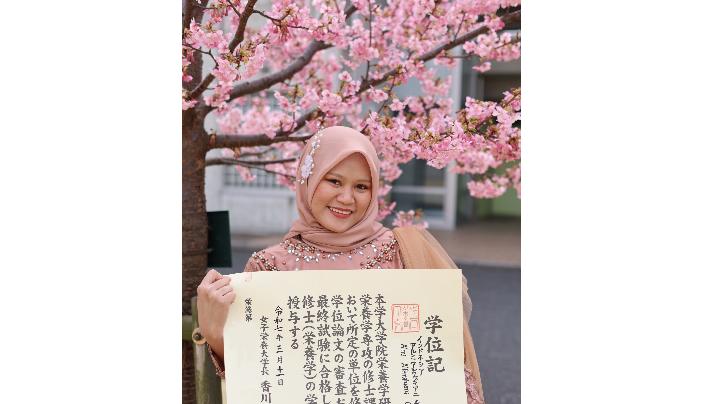 学位記
インドネシア
本学大学院栄養学研
栄養学専攻の修士課
おいて所定の単位を修
学位論文の審査お
最終試験に合格し
修士(栄養学)の学
授与する
令和七年三月十一日
女子栄養大学長 香川